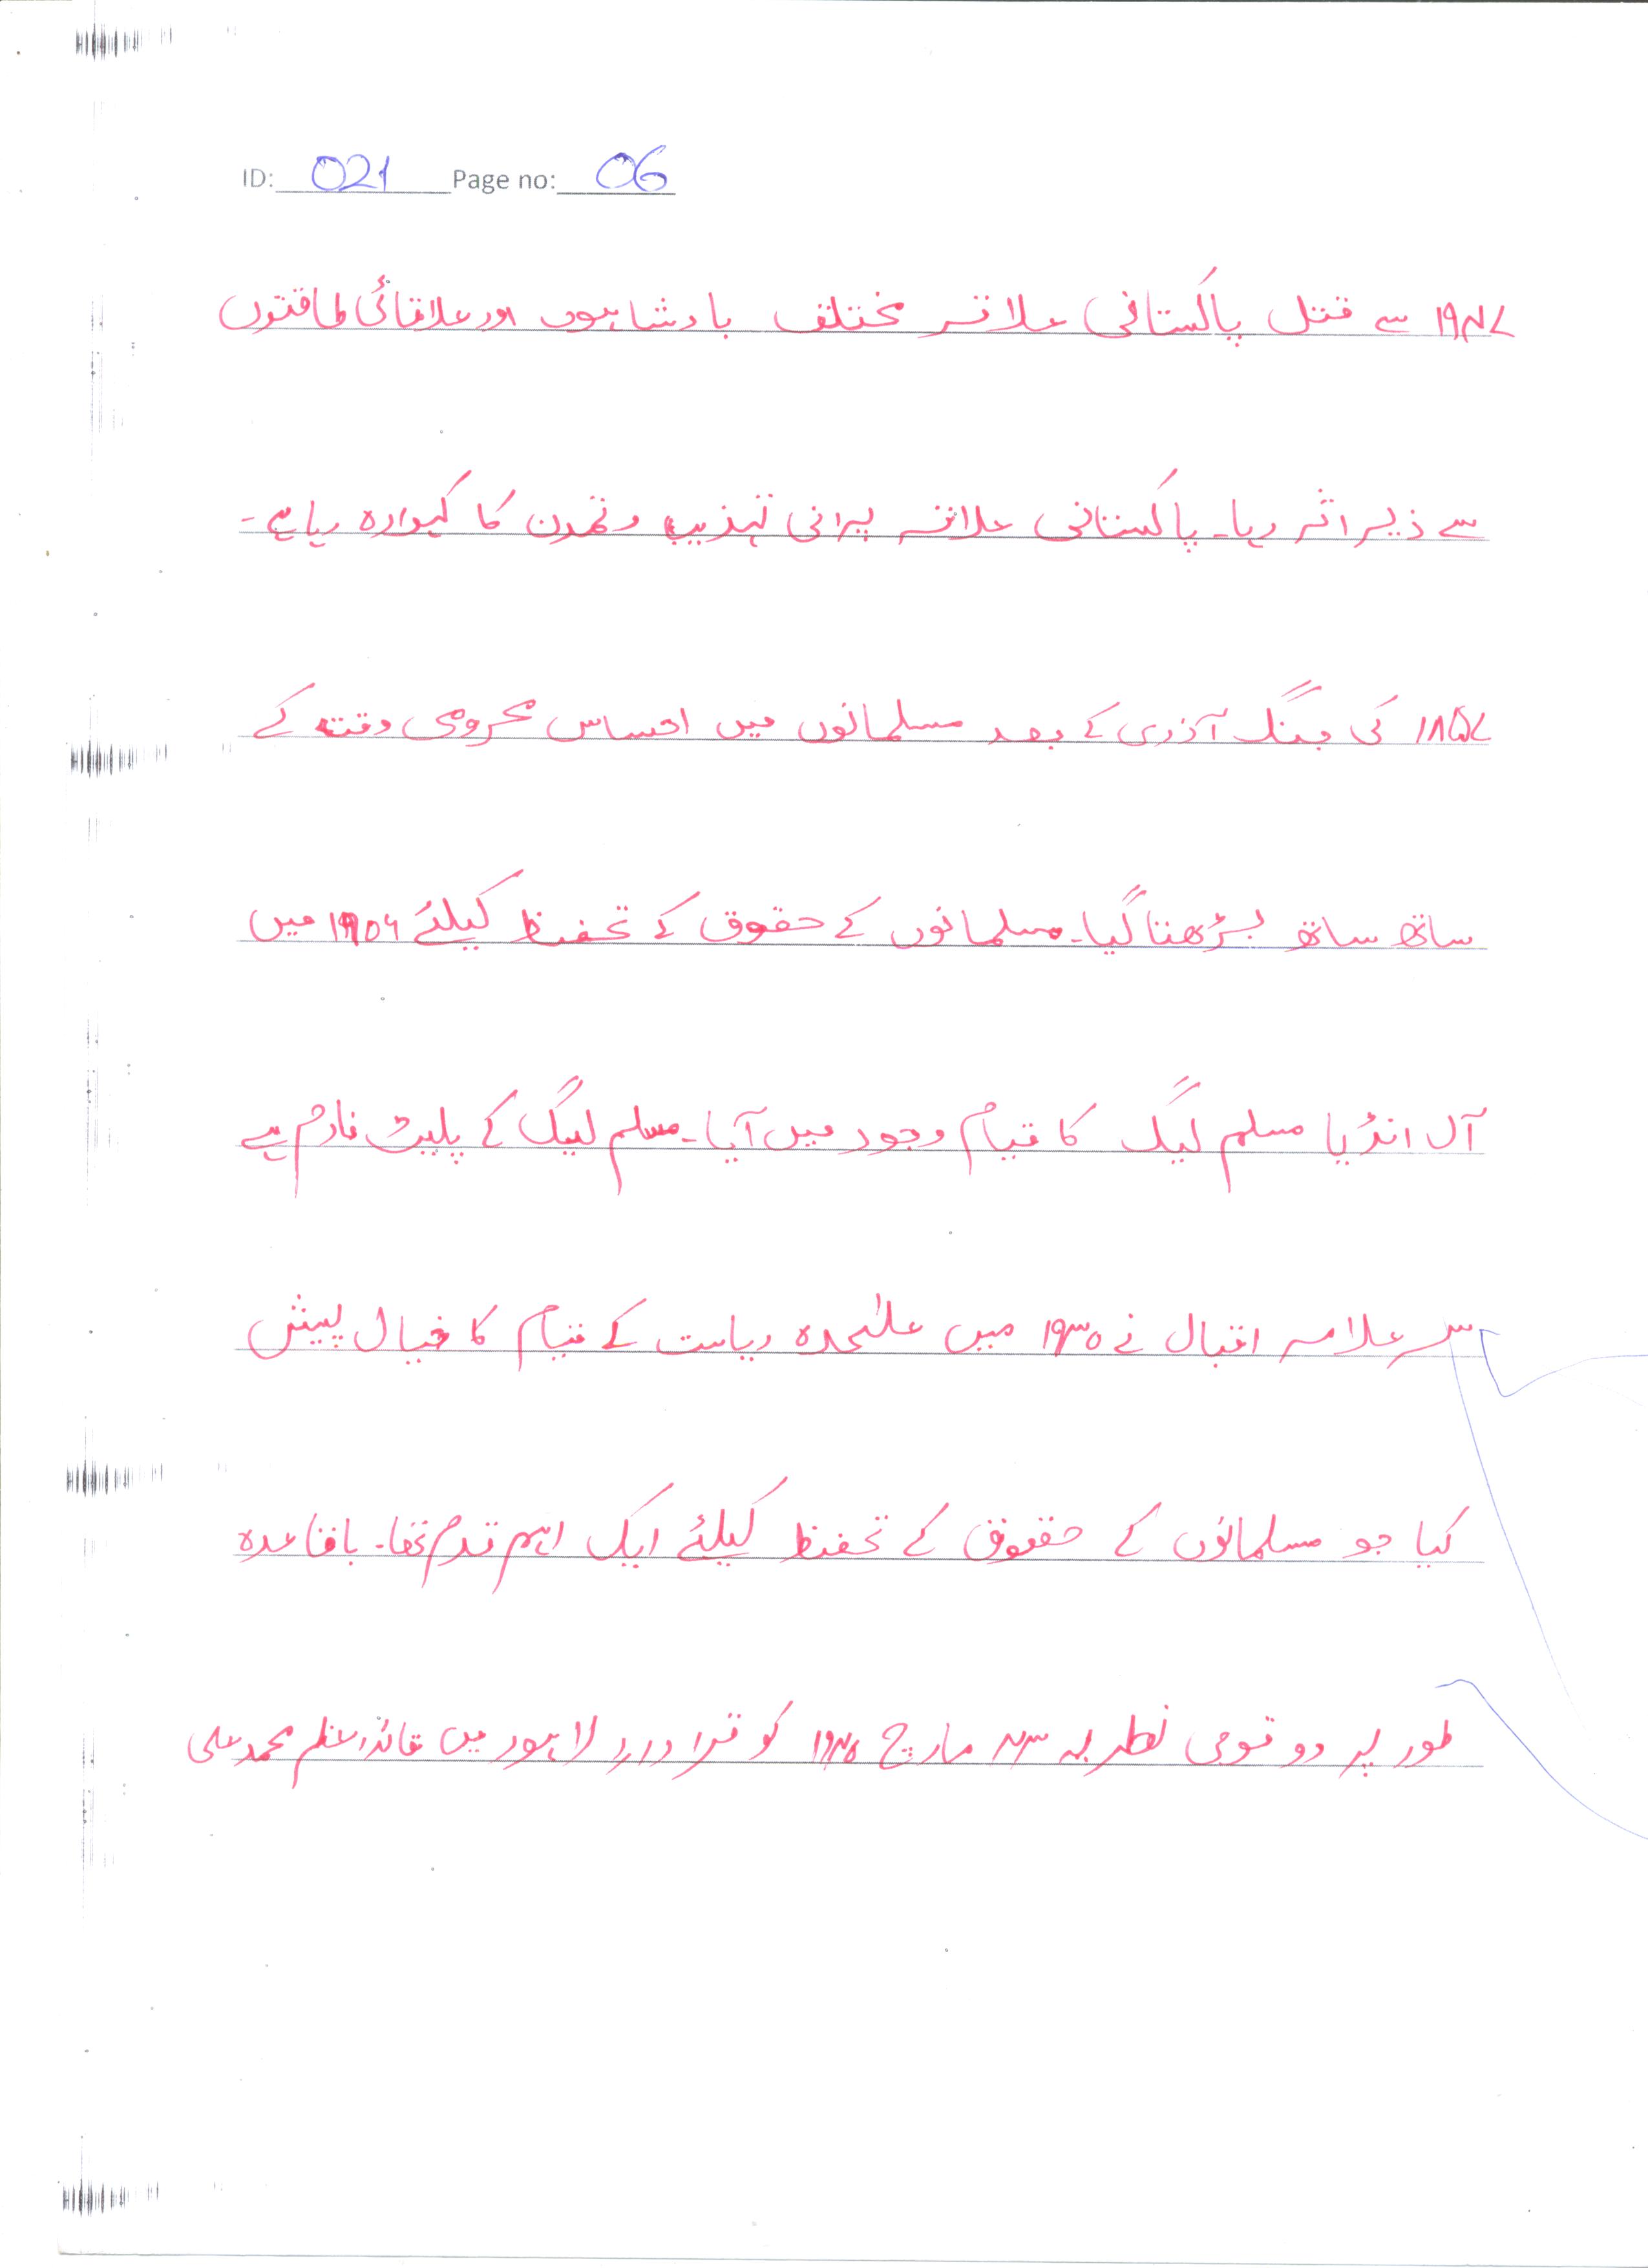 ID: 021 Page no: 06
۱۹۴۷ سے قبل پاکستانی علاقہ مختلف بادشاہوں اور علاقائی طاقتوں
سے ذیر اثر رہا۔ پاکستانی علاقہ پرانی تہذیب وتمدن کا گہوارہ رہا ہے۔
۱۸۵۷ کی جنگ آذدی کے بعد مسلمانوں میں احساس محرومی وقت کے
ساتھ ساتھ بڑھتا گیا۔ مسلمانوں کے حقوق کے تحفظ کیلئے ۱۹۰۶ میں
آل انڈیا مسلم لیگ کا قیام وجود میں آیا۔ مسلم لیگ کے پلیٹ فارم سے
سر علامہ اقبال نے ۱۹۳۰ میں علٰحدہ ریاست کے قیام کا خیال پیش
کیا جو مسلمانوں کے حقوق کے تحفظ کیلئے ایک اہم قدم تھا۔ باقاعدہ
طور پر دو قومی نظریہ ۲۳ مارچ ۱۹۴۰ کو قراردرد لاہور میں قائداعظم محمد علی